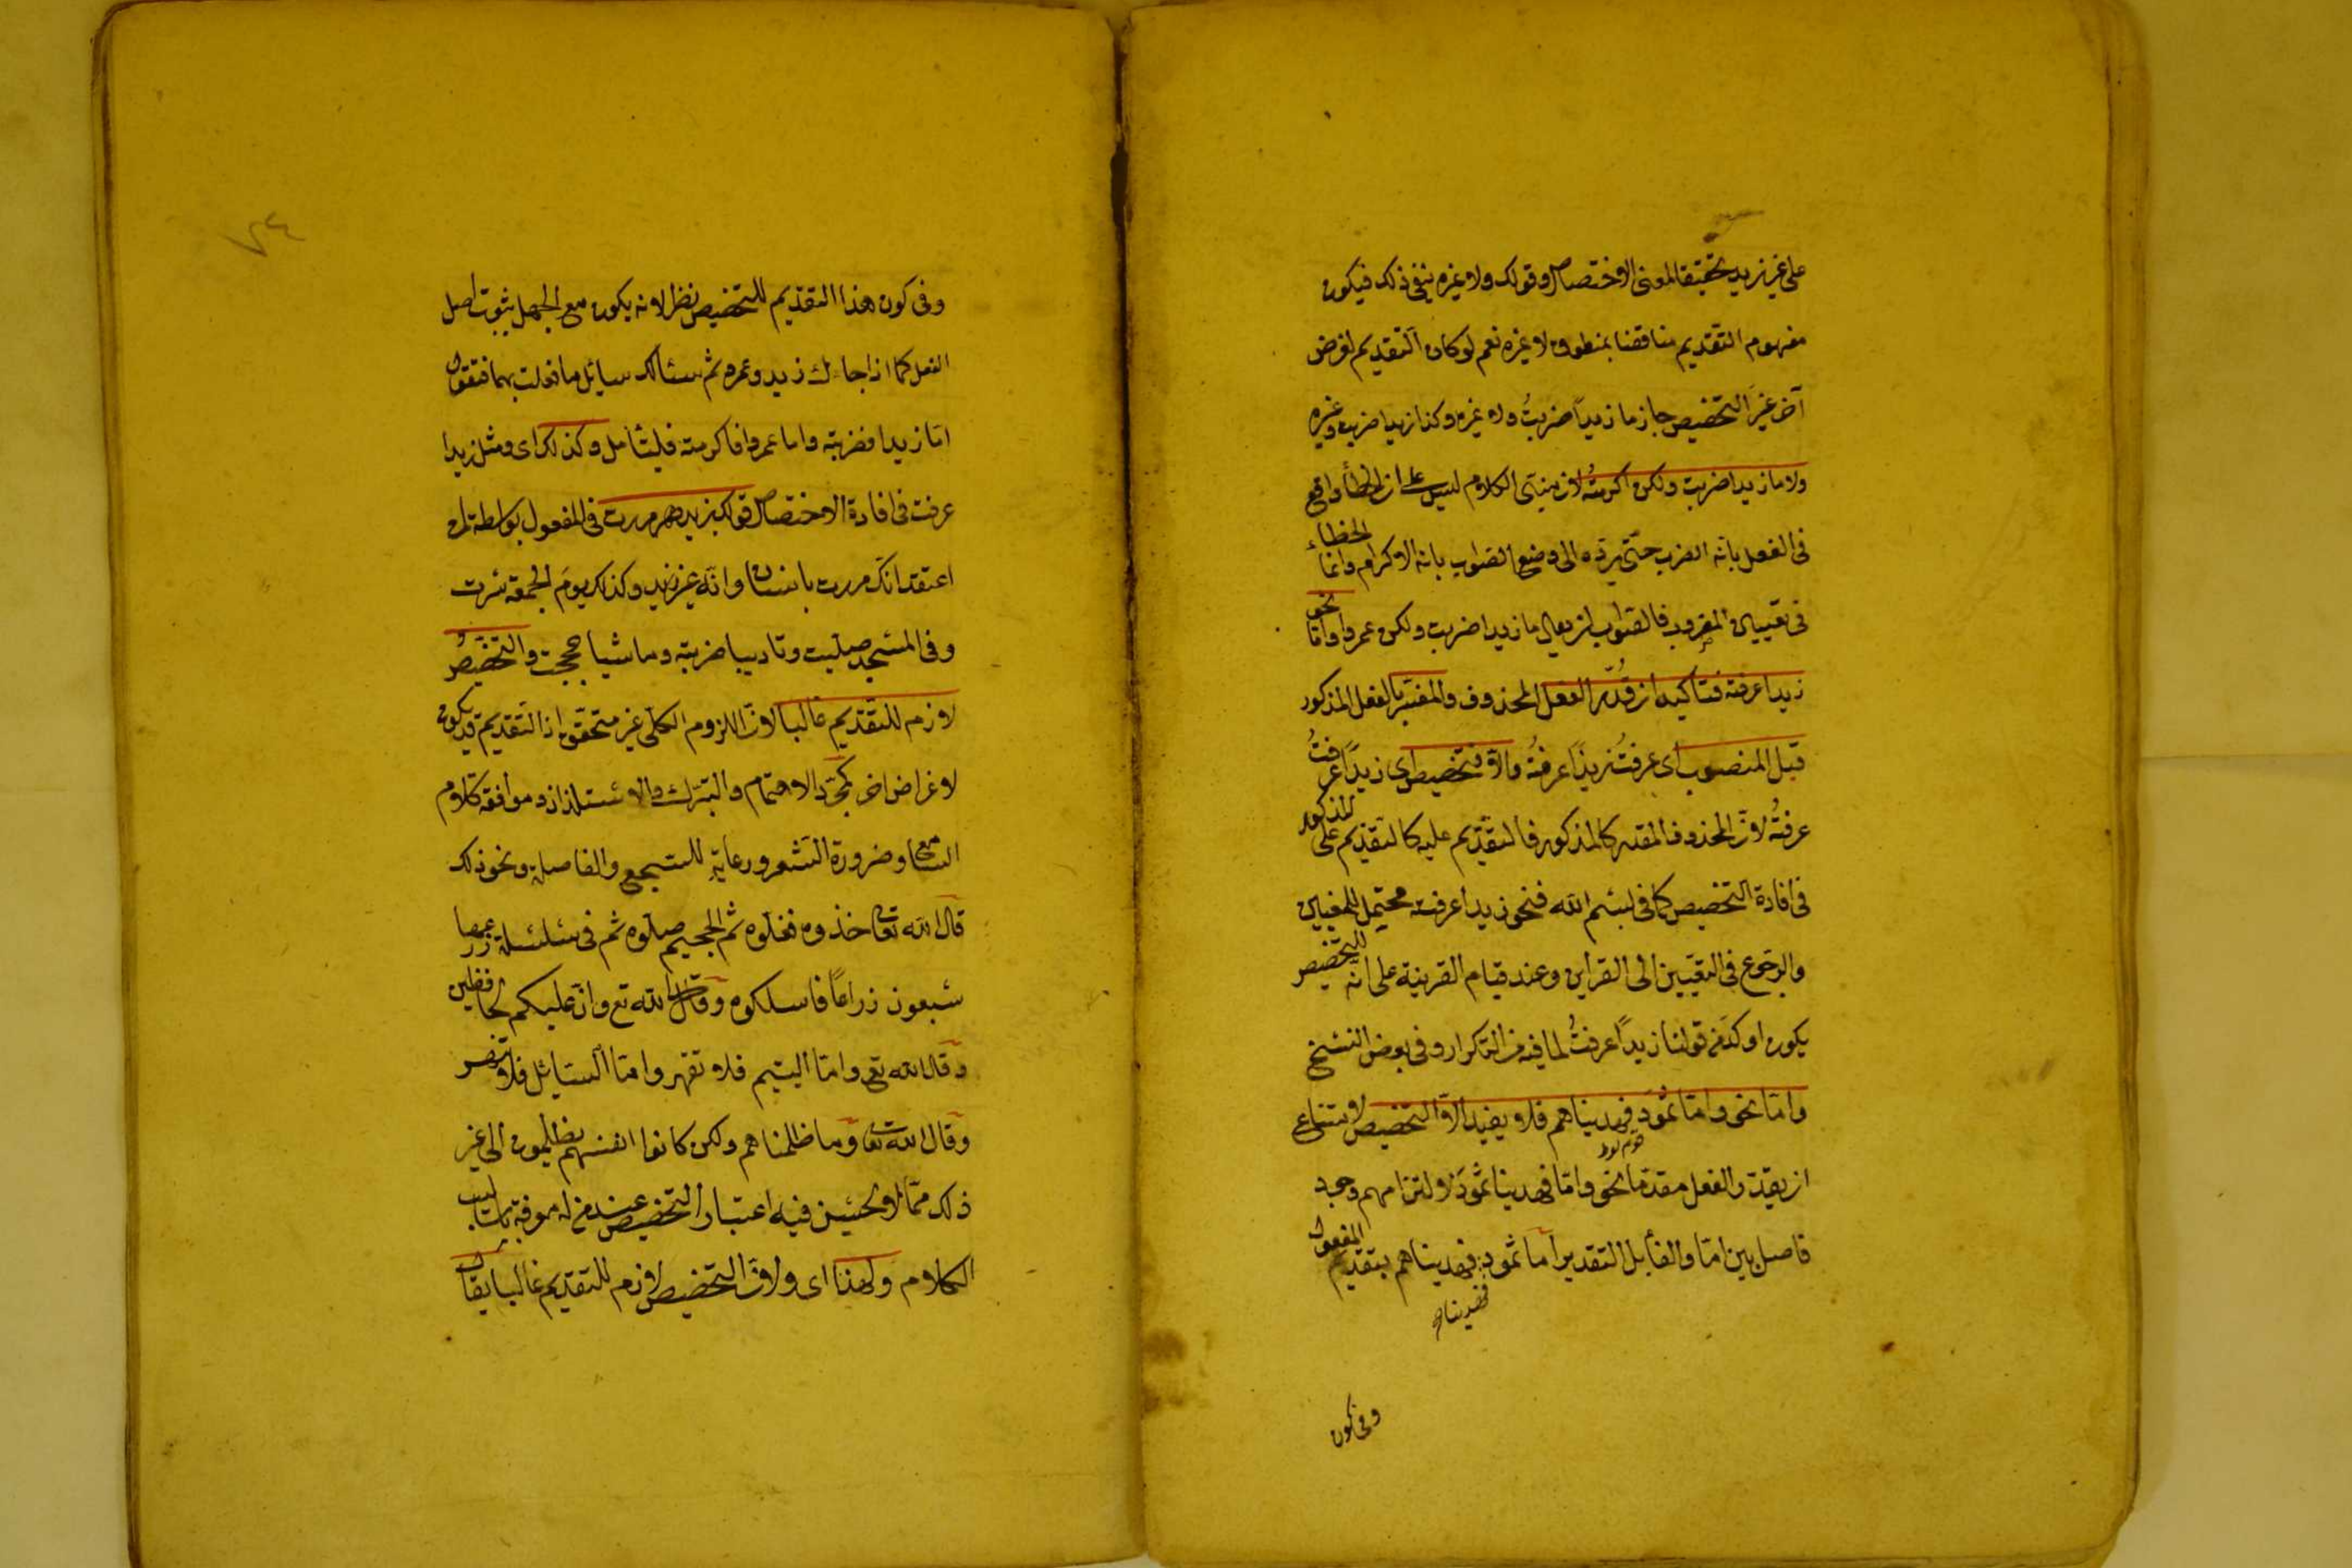 على غير زيد تحقيقا لمعنى الاختصاص وقولك ولا غيره ينفى ذلك فيكون
مفهوم التقديم مناقضا بمنطوق لا غيره نعم لو كان التقديم لغرض
آخر غير التخصيص جاز ما زيداً ضربتُ ولا غيره وكذا زيدا ضربت وغيره
ولا ما زيدا ضربت ولكن اكرمتُه لان مبنى الكلام ليس على ان الخطأ واقع
فى الفعل بانّه الضرب حتّى يردّه الى وضع الصّواب بانه الاكرام وانما الخطاء
فى تعيين المضروب فالصّواب ان يقال ما زيدا ضربت ولكن عمروا وامّا نحو
زيدا عرفته فتاكيد ان قُدّر الفعل المحذوف والمفسّر بالفعل المذكور
قبل المنصوب اى عرفتُ زيدًا عرفتُه والا فتخصيص اى زيدًا عرفتُ
عرفتُه لانّ المحذوف المقدر كالمذكور فالتقديم عليه كالتقديم على المذكور
فى افادة التخصيص كما فى بسم الله فنحو زيدا عرفته محتمل للمعنيين
والرجوع فى التعيين الى القراين وعند قيام القرينة على انّه للتخصيص
يكون اوكد من قولنا زيدًا عرفتُ لما فيه من التكرار وفى بعض النسخ
وامّا نحو وامّا ثمودَ فهديناهم فلا يفيد الّا التخصيص لامتناع
ان يقدّر الفعل مقدّما نحو وامّا فهدينا ثمودَ لالتزامهم وجود
فاصل بين امّا والفا بل التقدير اما ثمود فهديناهم بتقديم المفعول
وفى كون
٧٤
وفى كون هذا التقديم للتخصيص نظر لانه يكون مع الجهل بثبوت اصل
الفعل كما اذا جاءك زيد وعمرو ثم سئالك سايل ما فعلت بهما فتقول
امّا زيدا فضربته واما عمروا فاكرمته فليتأمل وكذلك اى ومثل زيدا
عرفت فى افادة الاختصاص قولك بزيد مررت فى المفعول بواسطة لمن
اعتقد انّك مررت بانسان وانّه غير زيد وكذلك يومَ الجمعة سرت
وفى المسجد صليت وتاديبا ضربته وماشيا حججت والتخصيصُ
لازم للتقديم غالبا لانّ اللزوم الكلّى غير متحقّق اذ التّقديم قد يكون
لاغراض اخر كمجرّد الاهتمام والتبرّك والاستلذاذ وموافقة كلام
السّامع وضرورة الشعر ورعاية السجع والفاصلة ونحو ذلك
قال الله تعا خذوه فغلّوه ثم الجحيم صلّوه ثم فى سلسلة ذرعها
سبعون ذراعًا فاسلكوه وقال الله تع وانّ عليكم لحافظين
وقال الله تع وامّا اليتيم فلا تقهر وامّا السايل فلا تنهر
وقال الله تعا وما ظلمناهم ولكن كانوا انفسهم يظلمون الى غير
ذلك ممّا لا يحسن فيه اعتبار التخصيص عند من له معرفة باساليب
الكلام ولهذا اى ولانّ التخصيص لازم للتقديم غالبا يقال